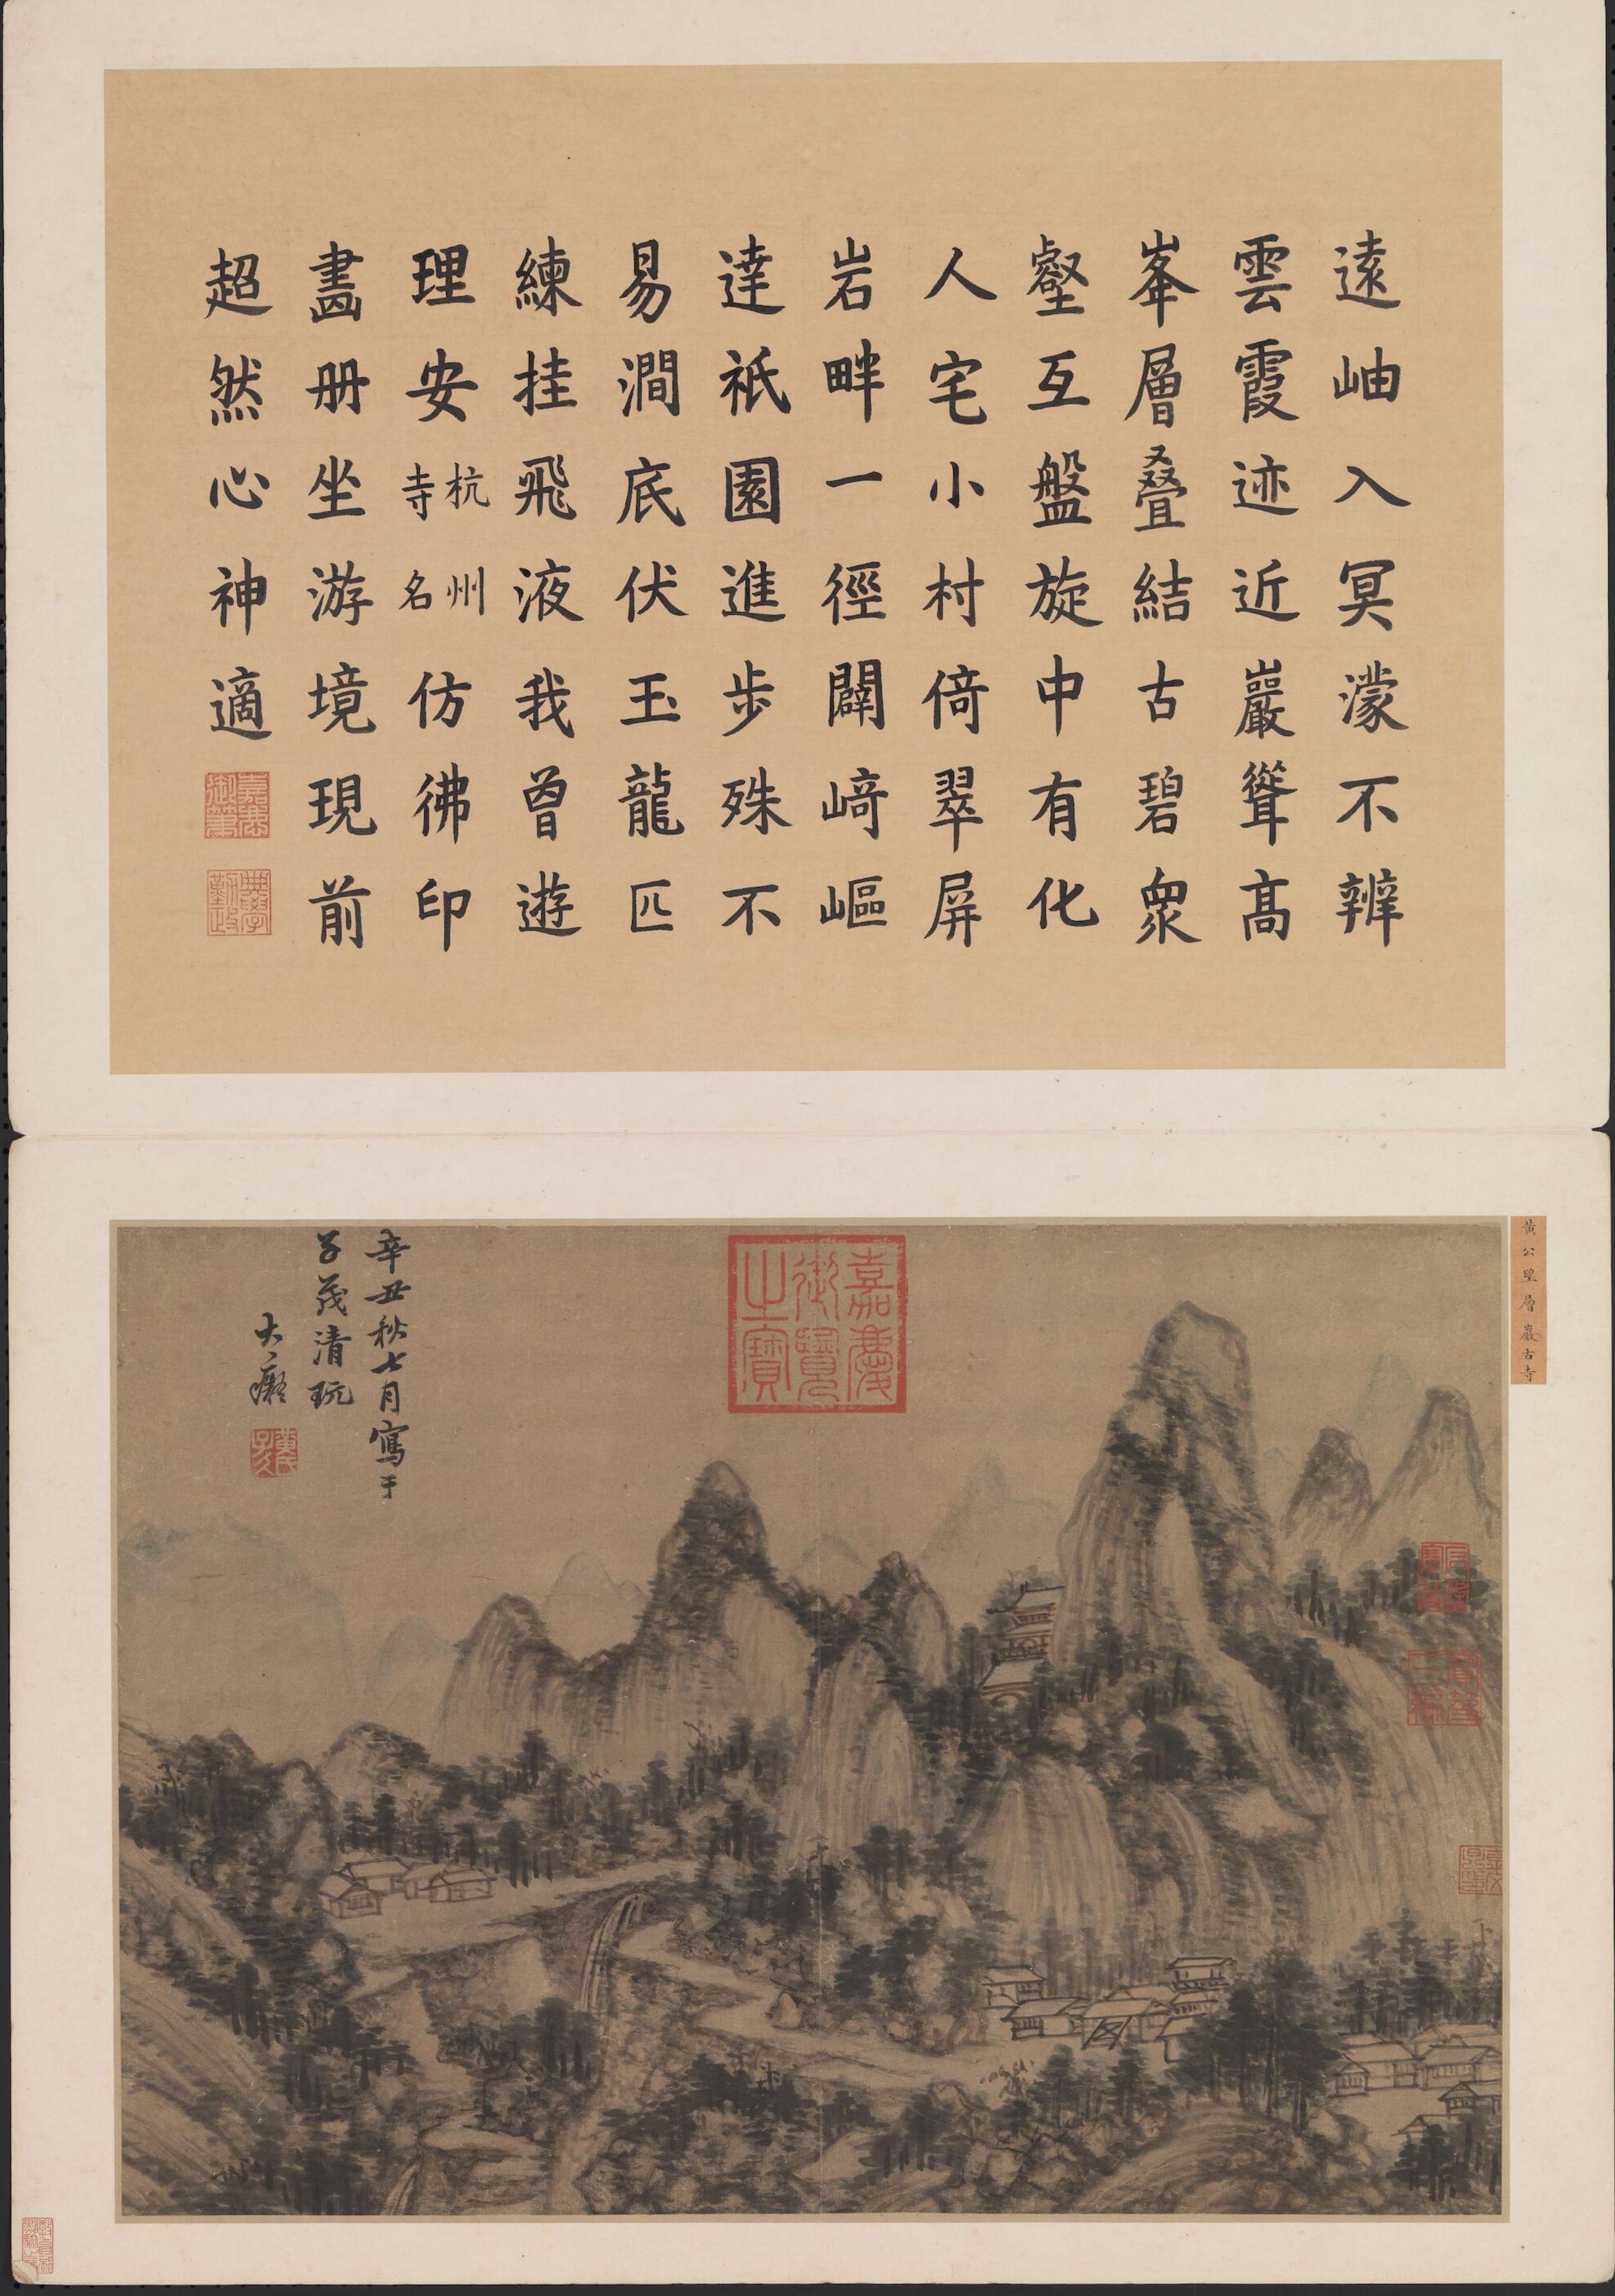 遠岫入冥濛不辨
雲霞迹近巖聳高
峯層叠結古碧衆
壑互盤旋中有化
人宅小村倚翠屏
岩畔一徑闢﨑嶇
達祇園進步殊不
易澗底伏玉龍匹
練挂飛液我曾遊
理安杭州寺名仿彿印
畫册坐游境現前
超然心神適
嘉慶御筆
典學勤政
黃公望層巖古寺
嘉慶御覽之寶
辛丑秋七月寫于
子茂清玩
大癡
黃氏子久